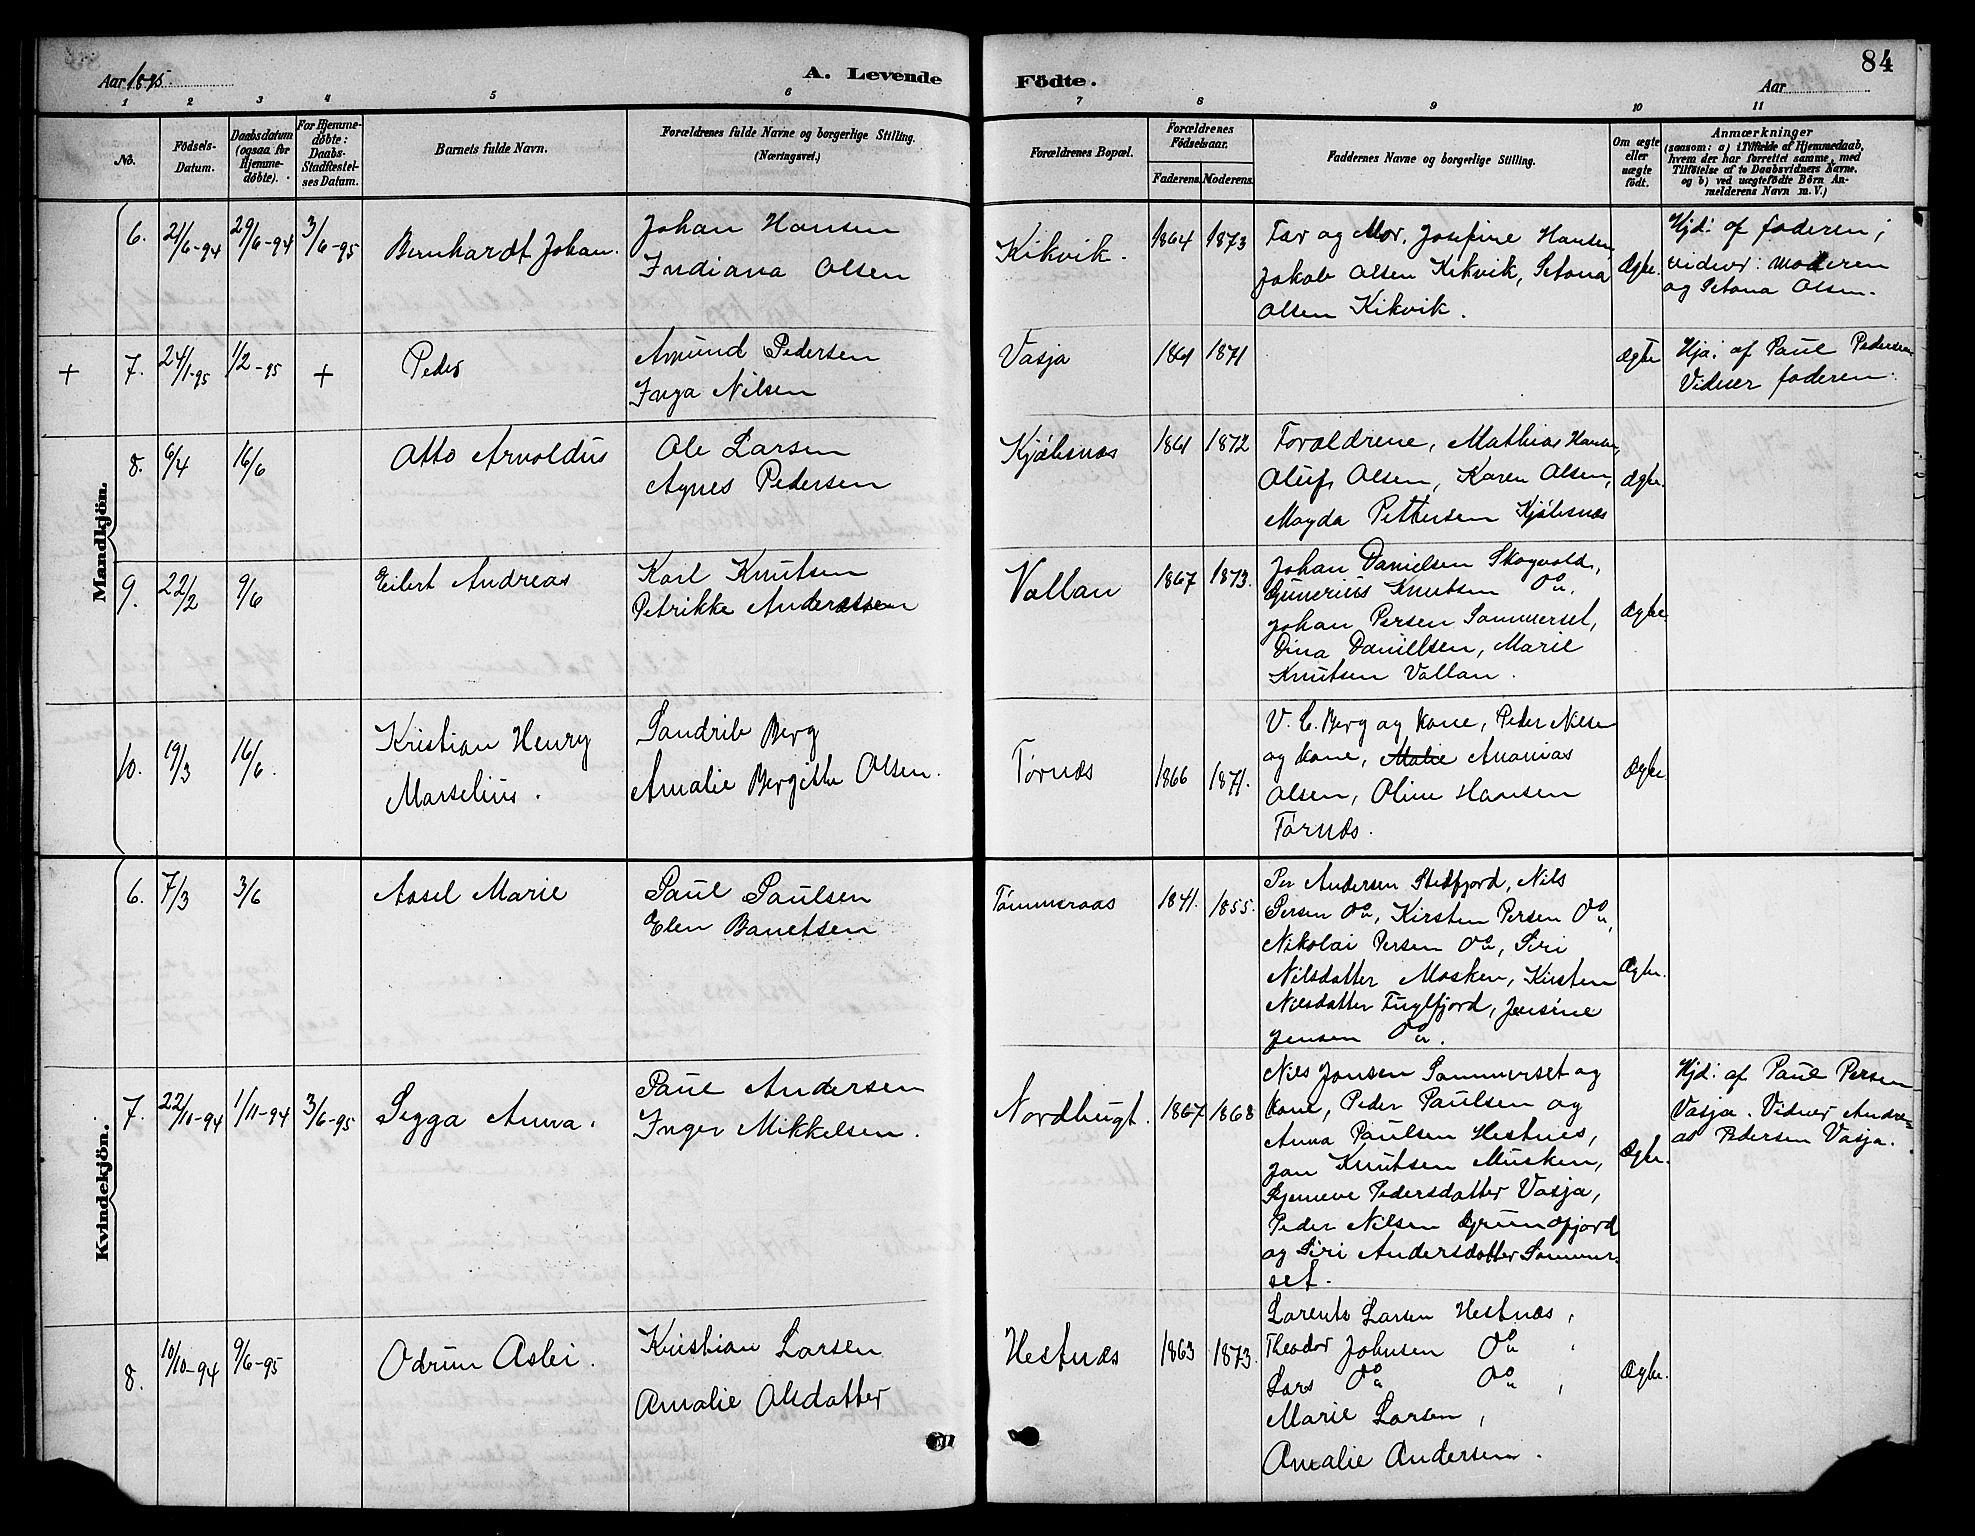 84
Aar 1895.
A. Levende
Födte.
Aar
1 2 3 4 5 6 7 8 9 10 11
No.
Födsels-
Datum.
Daabsdatum
(ogsaa for
Hjemme-
döbte).
For Hjemme-
döbte:
Daabs-
Stadfæstel-
ses Datum.
Barnets fulde Navn.
Forældrenes fulde Navne og borgerlige Stilling.
(Næringsvei.)
Forældrenes Bopæl.
Forældrenes
Födselsaar.
Faderens. Moderens.
Faddernes Navne og borgerlige Stilling.
Om ægte
eller
uægte
födt.
Anmærkninger
(saasom: a) i Tilfælde af Hjemmedaab,
hvem der har forrettet samme, med
Tilföielse af to Daabsvidners Navne.
og b) ved uægtefödte Börn An-
melderens Navn m. V.)
Mandkjön.
6. 21/6-94 29/6-94 3/6-95 Bernhardt Johan.
Johan Hansen
Indiana Olsen
Kikvik. 1864 1873
Far og Mor, Josefine Hansen,
Jakob Olsen Kikvik, Setona
Olsen Kikvik.
Ægte.
Hjd: af faderen;
vidner: moderen
og Setona Olsen.
+ 7. 24/1-95 1/2-95 + Peder
Amund Pedersen
Inga Nilsen
Vasja 1861 1871
Ægte
Hjd: af Paul Pedersen
Vidner faderen.
8. 6/4 16/6 Otto Arnoldus
Ole Larsen
Agnes Pedersen
Kjölisnæs 1861 1872
Forældrene, Mathias Hansen,
Oluf Olsen, Karen Olsen,
Magda Pettersen Kjölsnæs
Ægte.
9. 22/2 9/6 Eilert Andreas
Karl Knutsen
Petrikke Anderssen
Vallan 1867 1873.
Johan Danielsen Skogvold,
Gunerius Knutsen Do,
Johan Persen Sommerset,
Dina Danielsen, Marie
Knutsen Vallan.
Ægte
10. 19/3 16/6.
Kristian Henry
Marselius.
Sandrib Berg
Amalie Bergethe Olsen.
Tørnæs 1866 1871.
V. C. Berg og kone, Peder Nilsen
og kone, Malie Ananias
Olsen, Oline Hansen
Tørnæs.
Ægte
Kvindekjön.
6. 7/3 3/6 Assel Marie
Paul Paulsen
Elen Banetsen
Tømmeraas 1841. 1855.
Per Andersen Stedfjord, Nils
Persen Do, Kirsten Persen Do,
Nikolai Persen Do, Siri
Nilsdatter Mosken, Kirsten
Nilsdatter Fuglfjord, Jensine
Jensen Do.
Ægte.
7. 22/10-94 1/11-94 3/6-95 Sigga Anna.
Paul Andersen
Inger Mikkelsen.
Nordbugt. 1867 1868
Nils Jonsen Sommerset og
kone, Peder Paulsen og
Anna Paulsen Hestnes,
Jon Knutsen Musken,
Pedersdatter Vasja,
Peder Nilsen Grundfjord
og Siri Andersdatter Sommer-
set.
Ægte.
Hjd: af Paul Persen
Vasja. Vidner Andre-
as Pedersen Vasja.
8. 10/10-94 9/6-95 Odrun Aslei.
Kristian Larsen
Amalie Olsdatter
Hestnæs 1863 1873.
Lorents Larsen Hestnæs,
Theodor Johnsen Do,
Lars Do Do,
Marie Larsen,
Amalie Andersen.
Ægte.